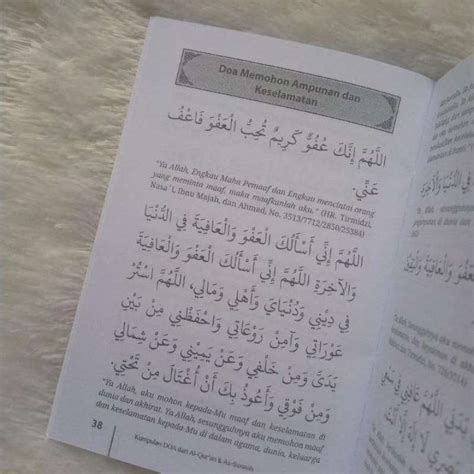 Doa Memohon Ampunan dan
Keselamatan
اللَّهُمَّ إِنَّكَ عَفُوٌّ كَرِيمٌ تُحِبُّ الْعَفْوَ فَاعْفُ
عَنِّي.
"Ya Allah, Engkau Maha Pemaaf dan Engkau mencintai orang
yang meminta maaf, maka maafkanlah aku." (HR. Tirmidzi,
Nasa`i, Ibnu Majah, dan Ahmad, No. 3513/7712/2850/25384)
اللَّهُمَّ إِنِّي أَسْأَلُكَ الْعَفْوَ وَالْعَافِيَةَ فِي الدُّنْيَا
وَالْآخِرَةِ اللَّهُمَّ إِنِّي أَسْأَلُكَ الْعَفْوَ وَالْعَافِيَةَ
فِي دِينِي وَدُنْيَايَ وَأَهْلِي وَمَالِي، اللَّهُمَّ اسْتُرْ
عَوْرَاتِي وَآمِنْ رَوْعَاتِي وَاحْفَظْنِي مِنْ بَيْنِ
يَدَيَّ وَمِنْ خَلْفِي وَعَنْ يَمِينِي وَعَنْ شِمَالِي
وَمِنْ فَوْقِي وَأَعُوذُ بِكَ أَنْ أُغْتَالَ مِنْ تَحْتِي.
"Ya Allah, aku mohon kepada-Mu maaf dan keselamatan di
dunia dan akhirat. Ya Allah, sesungguhnya aku memohon maaf
dan keselamatan kepada-Mu di dalam agama, dunia, keluarga
38
Kumpulan DOA dari Al-Qur'an & As-Sunnah